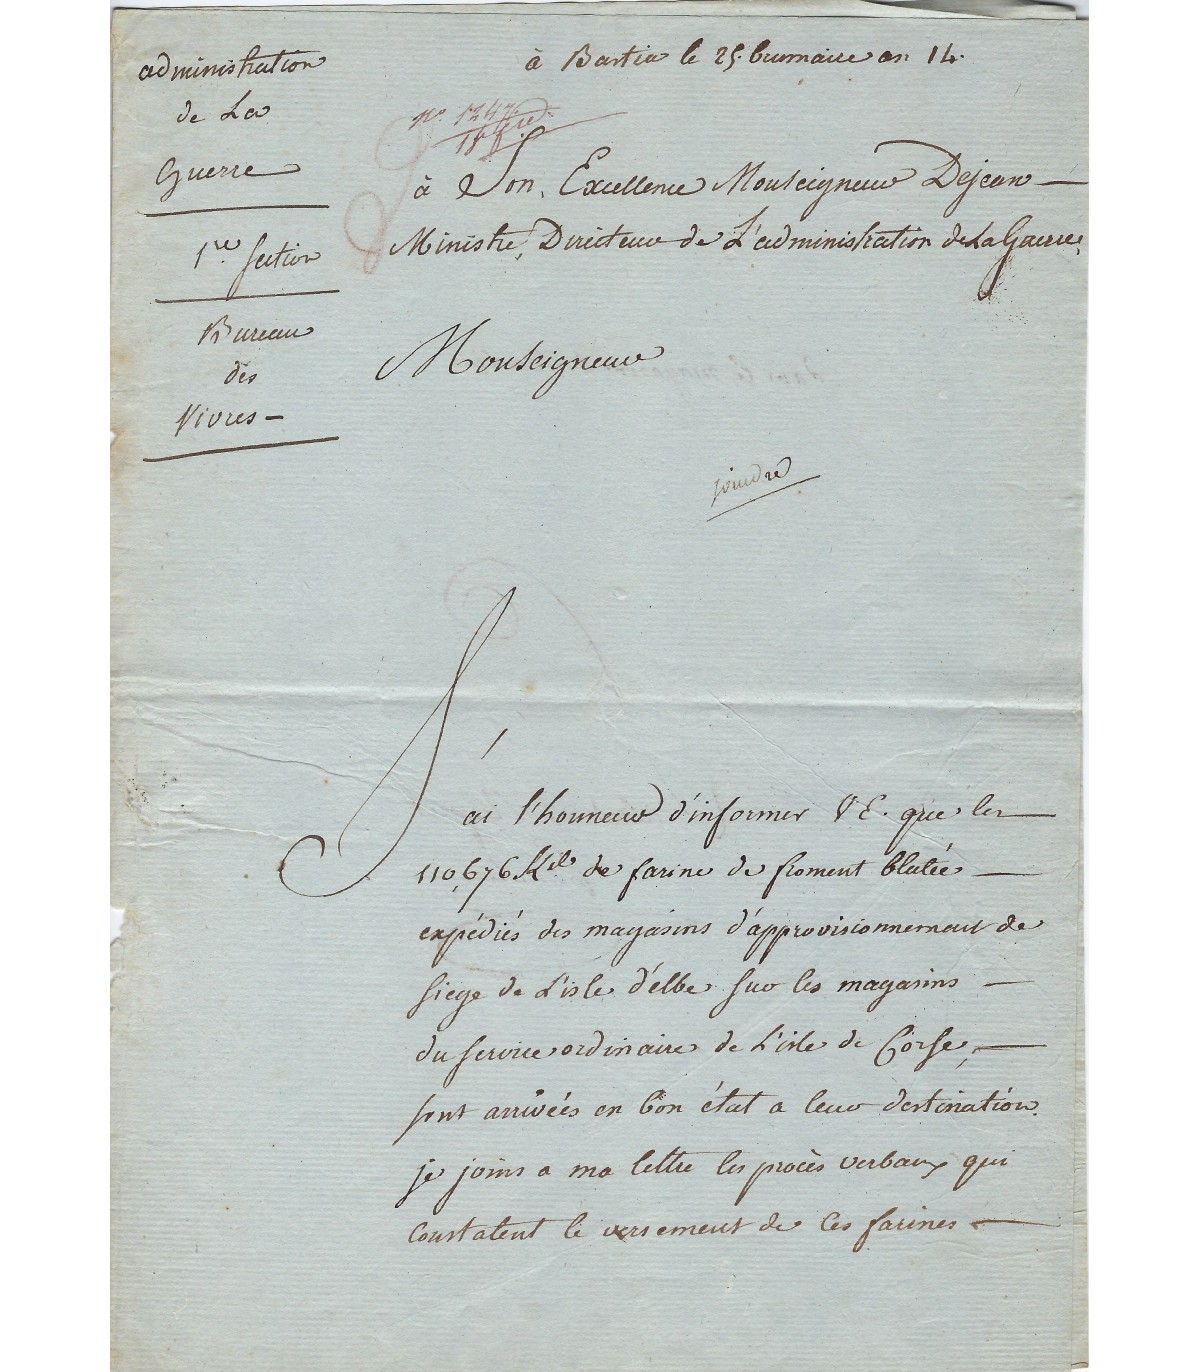 administration
de La
Guerre
1re. Section
Bureau
des
Vivres
à Bastia le 25. brumaire an 14.
no. 1247
à Son Excellence Monseigneur Dejean
Ministre, Directeur de L'administration de La Guerre,
Monseigneur
joindre
J'ai l'honneur d'informer V E. que les
110,676 Kil de farine de froment blutée
expédiés des magasins d'approvisionnement de
siege de L'isle d'élbe sur les magasins
du service ordinaire de L'isle de Corse,
sont arrivées en bon état a leur destination.
je joins a ma lettre les procès verbaux qui
constatent le versement de ces farines